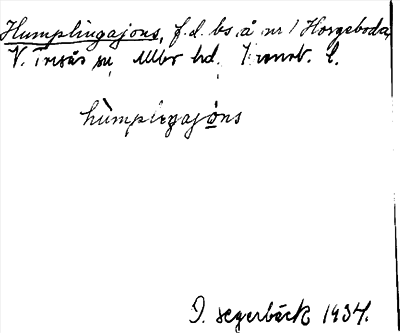 Humplingajons, f.d. bs å nr 1 Horgeboda,
V. Torsås sn, Allbo hd, Kronob. l.
hùmplegajòns
D. Segerbäck 1934.